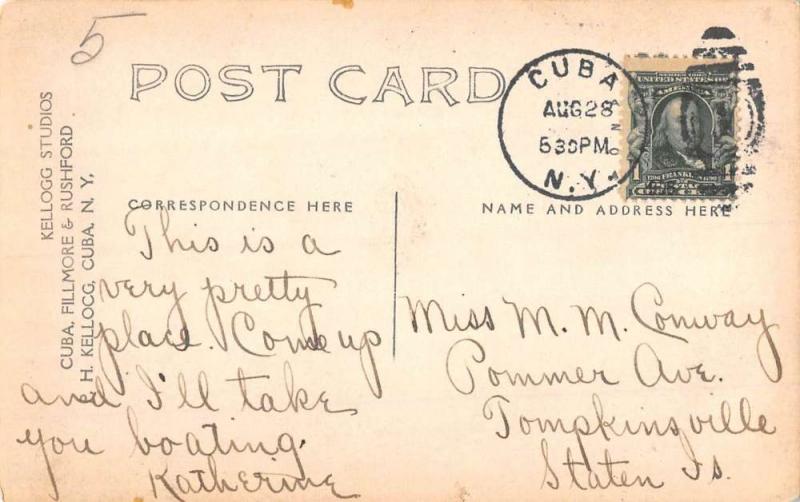 5
POST CARD
CUBA
AUG 28
530 PM
N.Y.
SERIES 1902
UNITED STATES OF
AMERICA
FRANKLIN
1
1
KELLOGG STUDIOS
CUBA, FILLMORE & RUSHFORD
H. KELLOGG, CUBA, N. Y.
CORRESPONDENCE HERE
NAME AND ADDRESS HERE
This is a
very pretty
place. Come up
and I'll take
you boating.
Katherine
Miss M. M. Conway
Pommer Ave.
Tompkinsville
Staten Is.